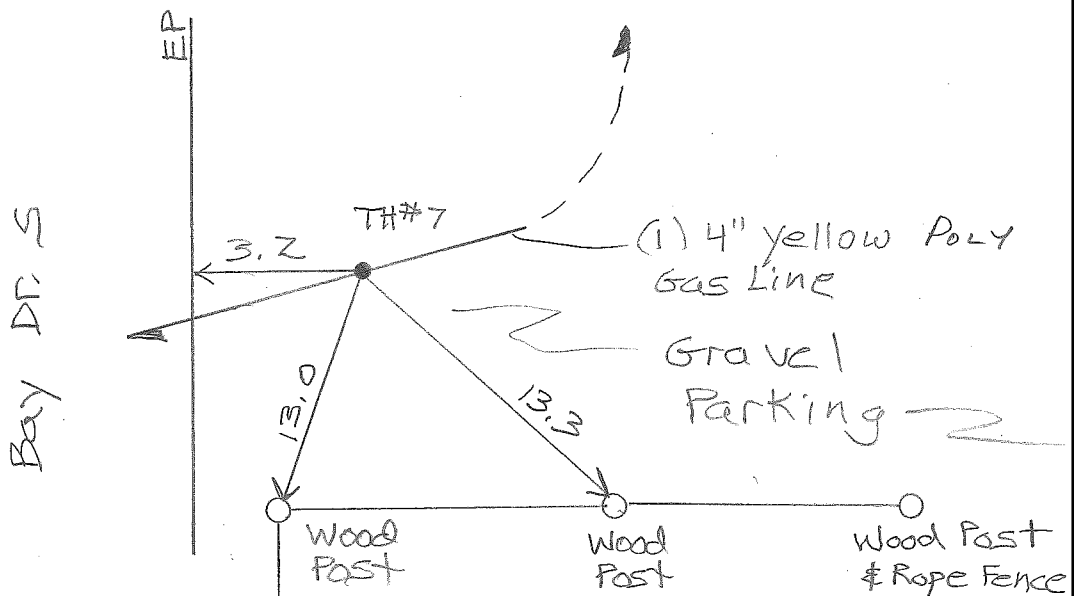 EP
TH#7
3.2
(1) 4" yellow Poly
Gas Line
Bay Dr. S
Gravel
Parking
13.0
13.3
Wood
Post
Wood
Post
Wood Post
& Rope Fence